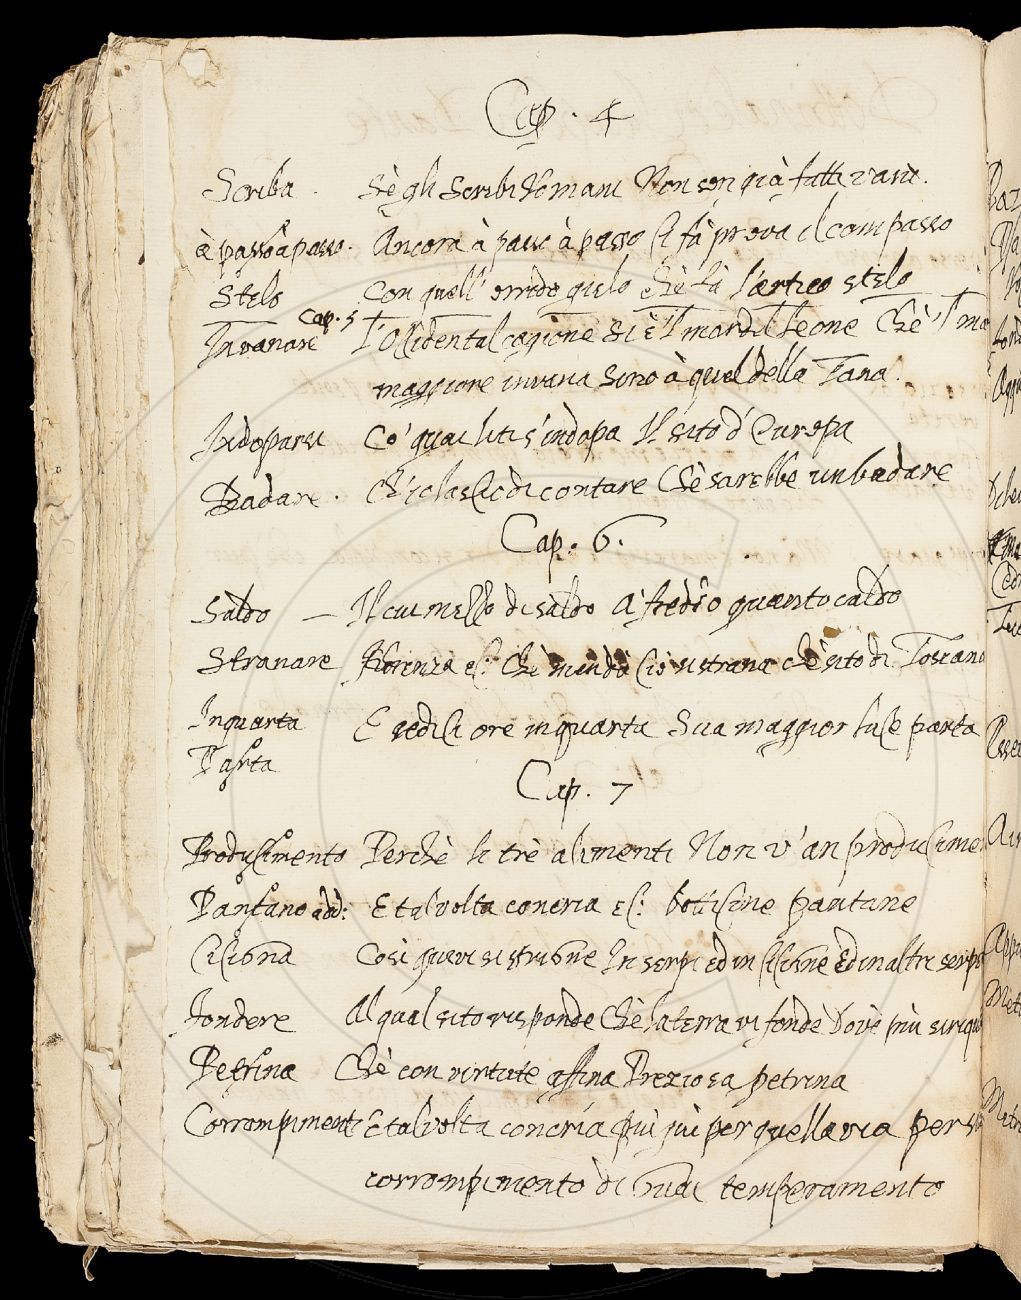 Cap. 4
Scriba. Sè gli Scribi Romani Non son già fatti vani.
à passo à passo. Ancora à passo à passo si fà prova il compasso
Stelo con quell' orrido gielo chè fà l'artico stelo
Cap. 5
Invanare L'occidental cagione Si è 'l mar del Leone Chè 'l ma
maggiore invana Sino à quel della Tana.
Indoparsi Co' quai liti s'indopa Il sito d'Europa
Badare. Ch'io lascio di contare Chè sarebbe un badare
Cap. 6.
Saldo — Il cui mezzo di saldo à freddo quanto caldo
Stranare Fiorenza chè sito di Toscana
Inquarta E ore inquarta Sua maggior luce parta
Parta
Cap. 7
Producimento Perchè li trè alimenti Non v'an producime
Pantano add: E tal volta concria Ec: botticine pantane
Ciciona Così quivi si strione In serpi ed in cicione Ed in altri serpe
Fondere Al qual sito risponde Chè la terra vi fonde Dovè più si riqu
Petrina Chè con virtute affina Preziosa petrina
Corrompimenti E tal volta concria più giù per quella via per
corrompimento di temperamento